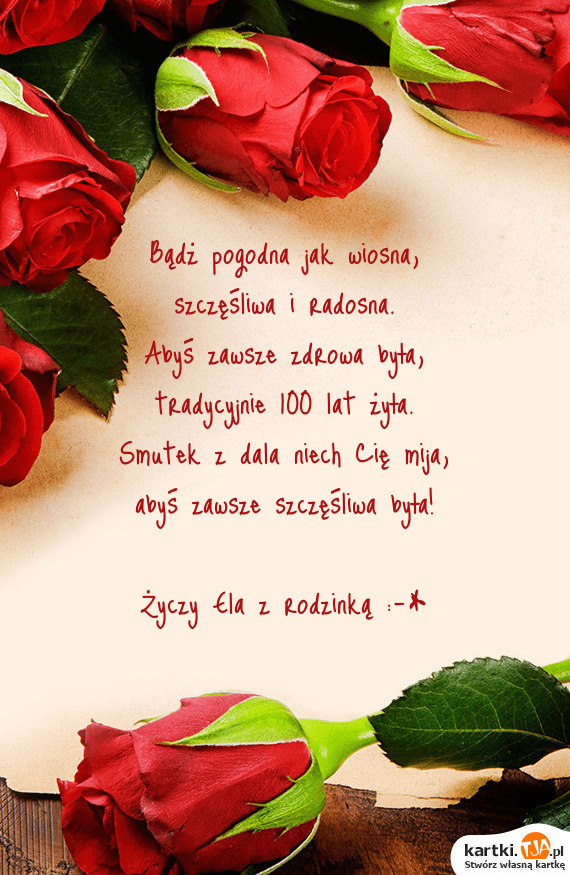 Bądź pogodna jak wiosna,
szczęśliwa i radosna.
Abyś zawsze zdrowa była,
tradycyjnie 100 lat żyła.
Smutek z dala niech Cię mija,
abyś zawsze szczęśliwa była!
Życzy Ela z rodzinką :-*
kartki.TJA.pl
Stwórz własną kartkę